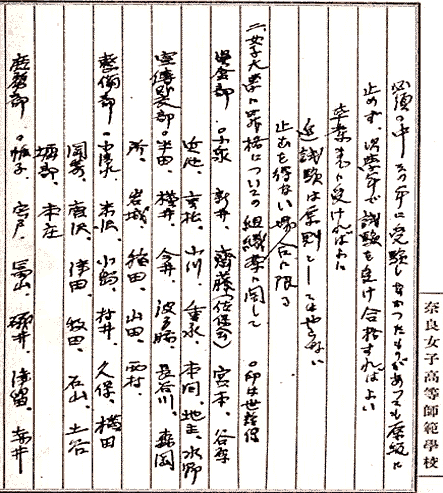 必須の中その年に受験しなかつたものがあつても原級に
止めず、次学年で試験を受け合格すればよい
卒業までに受ければよい
追試験は原則としてはやらない
止むを得ない場合に限る
二、女子大学に昇格についての組織案に関して ○印は世話役
資金部 ○小泉 新井、齋藤 宮本、谷原
近池、小川、重永、本間、地主、水野
宣傳散文部 ○半田、横井、今井、波多腰、長谷川、森岡
所、岩城、稲田、山田、西村、
整備部 ○清水、米沢、小野、村井、久保、横田
関芳、唐沢、津田、牧田、石山、土谷
堀部、本庄
庶務部 ○帷子、宍戸、畠山、礒井、津留、赤井
奈良女子高等師範學校